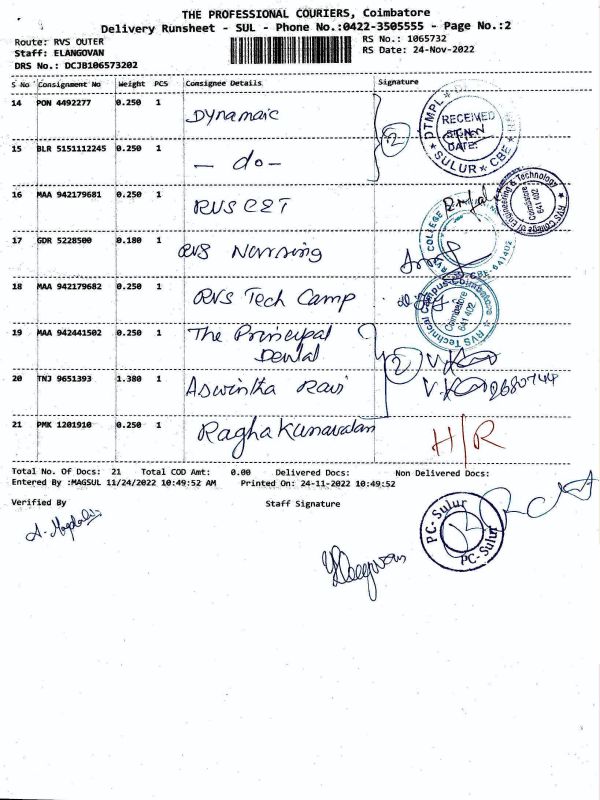 THE PROFESSIONAL COURIERS, Coimbatore
Delivery Runsheet - SUL - Phone No.:0422-3505555 - Page No.:2
Route: RVS OUTER
RS No.: 1065732
Staff: ELANGOVAN
RS Date: 24-Nov-2022
DRS No.: DCJB106573202
S No Consignment No Weight PCS Consignee Details Signature
14 PON 4492277 0.250 1 Dynamaic
15 BLR 5151112245 0.250 1 - do -
2
DTMPL
RECEIVED
SIGN
DATE:
SULUR ★ CBE
16 MAA 942179681 0.250 1 RVS CET
RVS College of Engineering & Technology
Coimbatore
641 402
17 GDR 5228500 0.180 1 RVS Nursing
RVS COLLEGE
CBE-641402
18 MAA 942179682 0.250 1 RVS Tech Camp
RVS Technical Campus-Coimbatore
Coimbatore
641 402
19 MAA 942441502 0.250 1 The Principal
Dental
2
20 TNJ 9651393 1.380 1 Aswintha Ravi
21 PMK 1201910 0.250 1
H/R
Total No. Of Docs: 21 Total COD Amt: 0.00 Delivered Docs: Non Delivered Docs:
Entered By :MAGSUL 11/24/2022 10:49:52 AM Printed On: 24-11-2022 10:49:52
Verified By Staff Signature
PC-Sulur
PC-Sulur